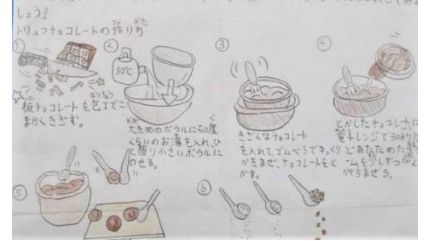 しょう。
トリュフチョコレートの作り方
①
②
③
④
50℃
板チョコレートを包丁でこ
まかくきざむ。
大きめのボウルに50度
くらいのお湯を入れ、ひ
と回り小さいボウルに
のせる。
きざんだチョコレート
を入れて、ゴムべらでゆっくり
かきまぜ、チョコレートをと
かす。
とかしたチョコレートに
電子レンジで30秒ほ
どあたためた
ームを
がらまぜる。
⑤
⑥